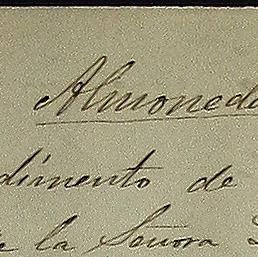 Almoneda
dimento de
de la Senora